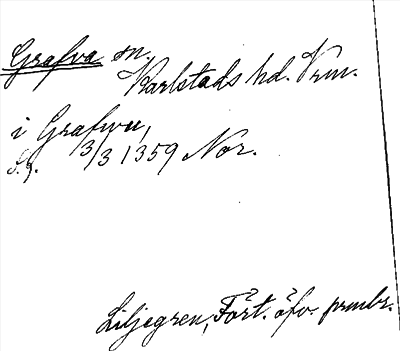 Grafva sn.
Karlstads hd. Vrm.
i Grafwu,
S. 9. 13/3 1359 Nor.
Liljegren, Fört. öfv. prmbr.